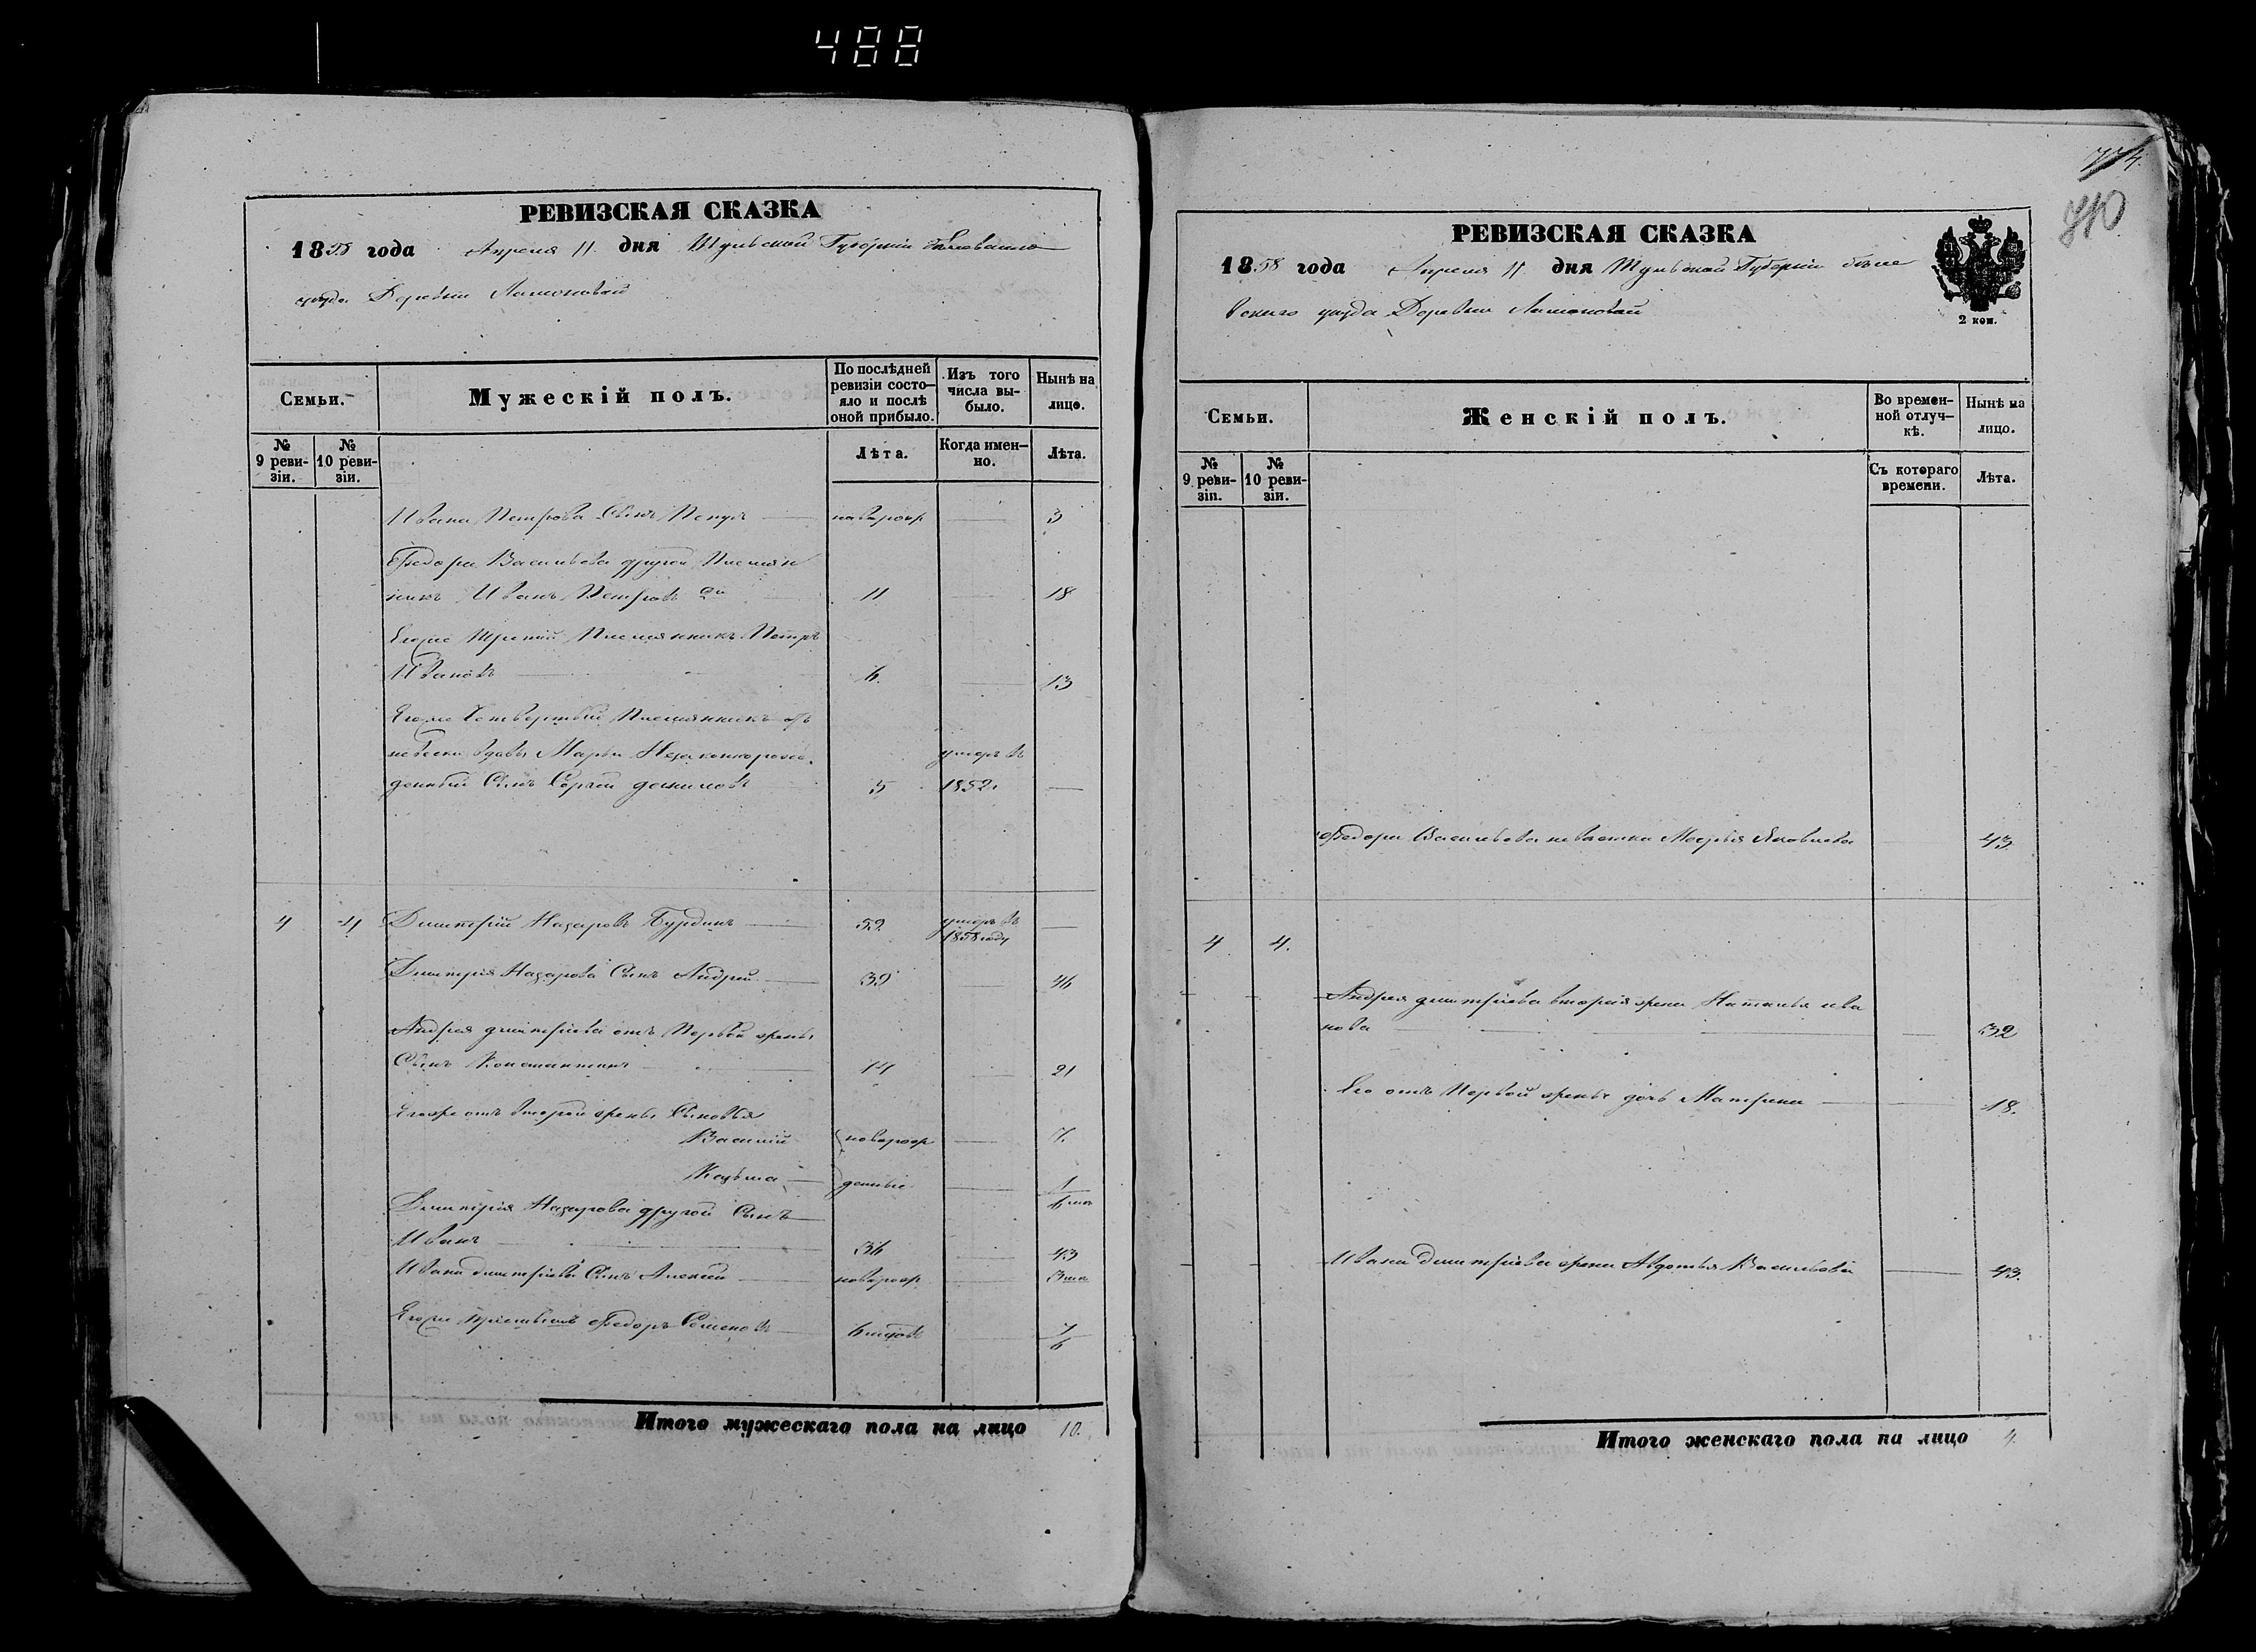 488
РЕВИЗСКАЯ СКАЗКА
1858 года Апреля 11 дня Тульской Губернiи Белевскаго
уезда Деревни
Семьи.
Мужескiй полъ.
По послѣдней ревизiи состо-
яло и послѣ оной прибыло.
Изъ того числа вы-
было.
Нынѣ на лицо.
№ 9 реви-
зiи.
№ 10 реви-
зiи.
Лѣта.
Когда имен-
но.
Лѣта.
Ивана Петрова Сынъ новорож 3
Федора Васильева другой Племян
никъ Иванъ Петровъ 11 18
Егоже Третiй Племянникъ Петръ
Ивановъ 6. 13
Егоже Четвертый Племянникъ отъ
невестки вдовы Марьи Незаконнорож умеръ въ
денный Сынъ Сергей 5 1852.
4 4 Димитрiй Назаровъ Бурдинъ 52 умеръ въ
1858 году
Димитрiя Назарова Сынъ Андрей 39 46
Андрея димитрiева отъ Первой жены
Сынъ Константинъ 14 21
Егоже отъ второй жены Сыновья
Василiй новорож 7.
Козьма денные 1
6 мес
Димитрiя Назарова другой Сынъ
Иванъ 36 43
Ивана димитрiева Сынъ Алексей новорож 3 мес
Егоже Федоръ Семеновъ 7
6
Итого мужескаго пола на лицо 10.
774.
710
РЕВИЗСКАЯ СКАЗКА
1858 года Апреля 11 дня Тульской Губернiи Беле
вскаго уезда Деревни
2 коп.
Семьи.
Женскiй полъ.
Во времен-
ной отлуч-
кѣ.
Нынѣ на лицо.
№ 9 реви-
зiи.
№ 10 реви-
зiи.
Съ котораго времени.
Лѣта.
Федора Васильева невестка Марья Яковлева 43
4 4.
Андрея димитрiева вторая жена Наталья ива
нова 32
Его отъ Первой жены дочь Матрена 18.
Ивана димитрiева жена Авдотья Васильева 43.
Итого женскаго пола на лицо 4.